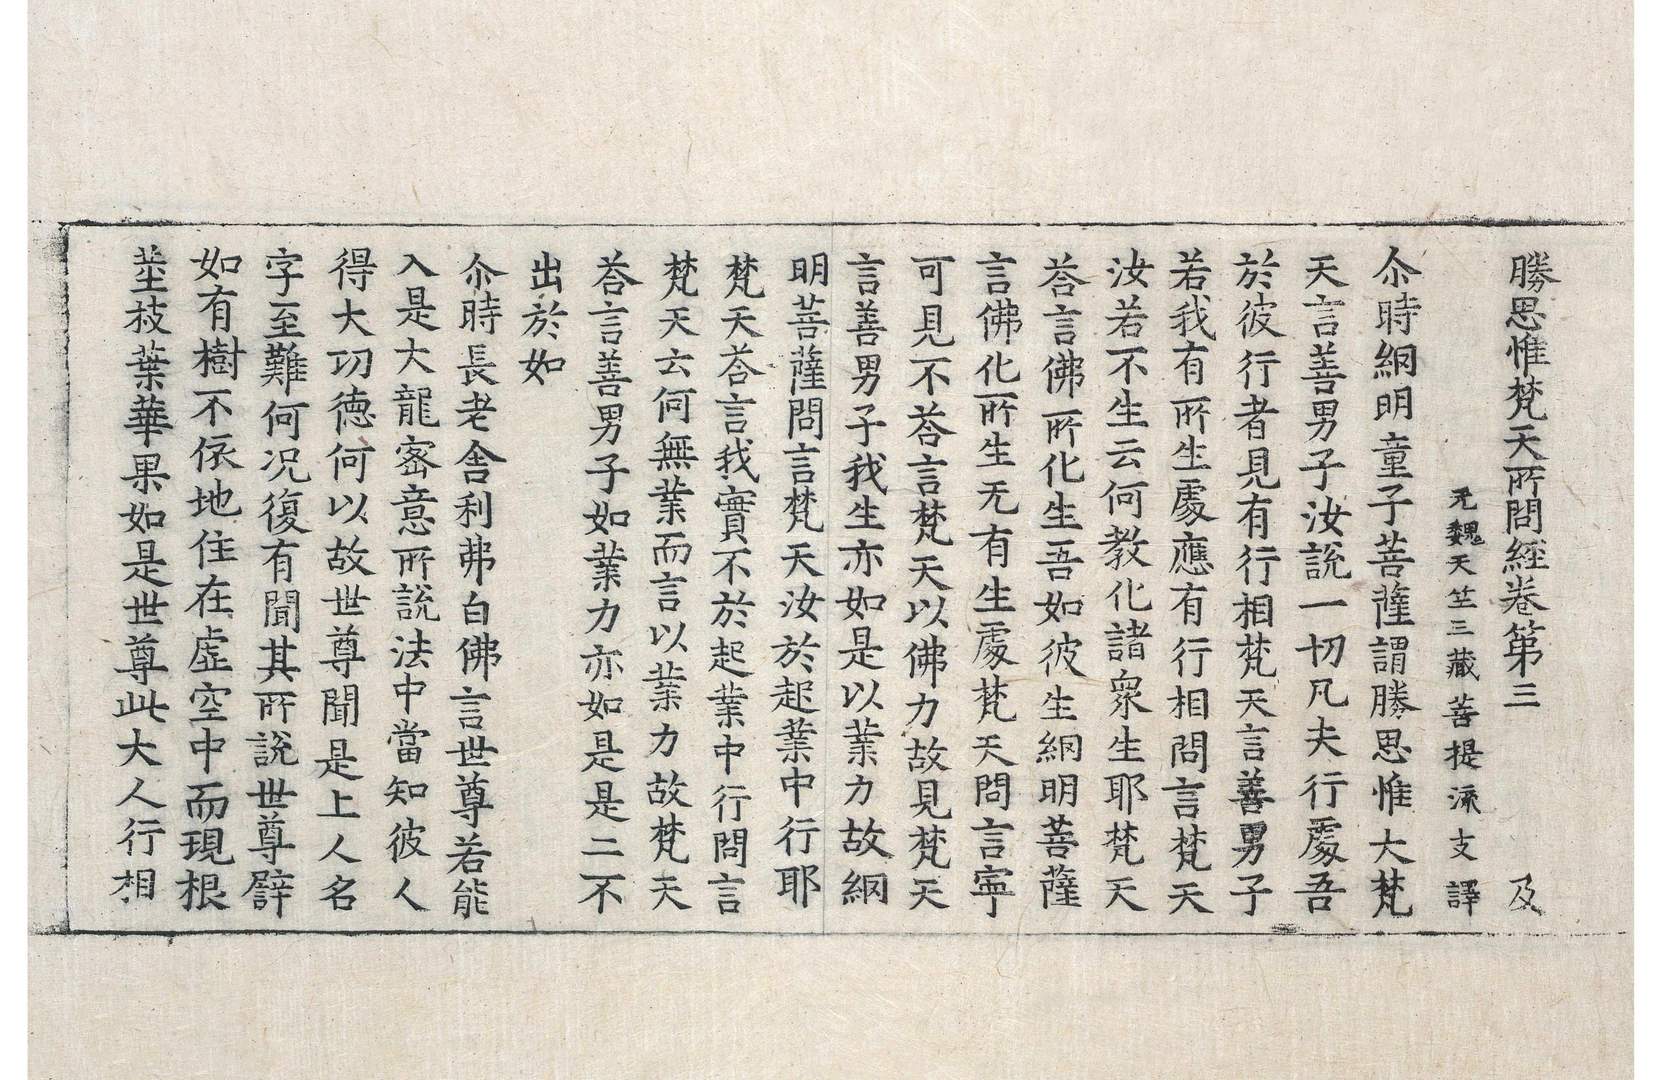 勝思惟梵天所問經卷第三 及
元魏天竺三藏菩提流支譯
尒時網明童子菩薩謂勝思惟大梵
天言善男子汝說一切凡夫行處吾
於彼行者見有行相梵天言善男子
若我有所生處應有行相問言梵天
汝若不生云何教化諸衆生耶梵天
荅言佛所化生吾如彼生網明菩薩
言佛化所生无有生處梵天問言寧
可見不荅言梵天以佛力故見梵天
言善男子我生亦如是以業力故網
明菩薩問言梵天汝於起業中行耶
梵天荅言我實不於起業中行問言
梵天云何無業而言以業力故梵天
荅言善男子如業力亦如是是二不
出於如
尒時長老舍利弗白佛言世尊若能
入是大龍密意所說法中當知彼人
得大功德何以故世尊聞是上人名
字至難何况復有聞其所說世尊譬
如有樹不依地住在虛空中而現根
莖枝葉華果如是世尊此大人行相